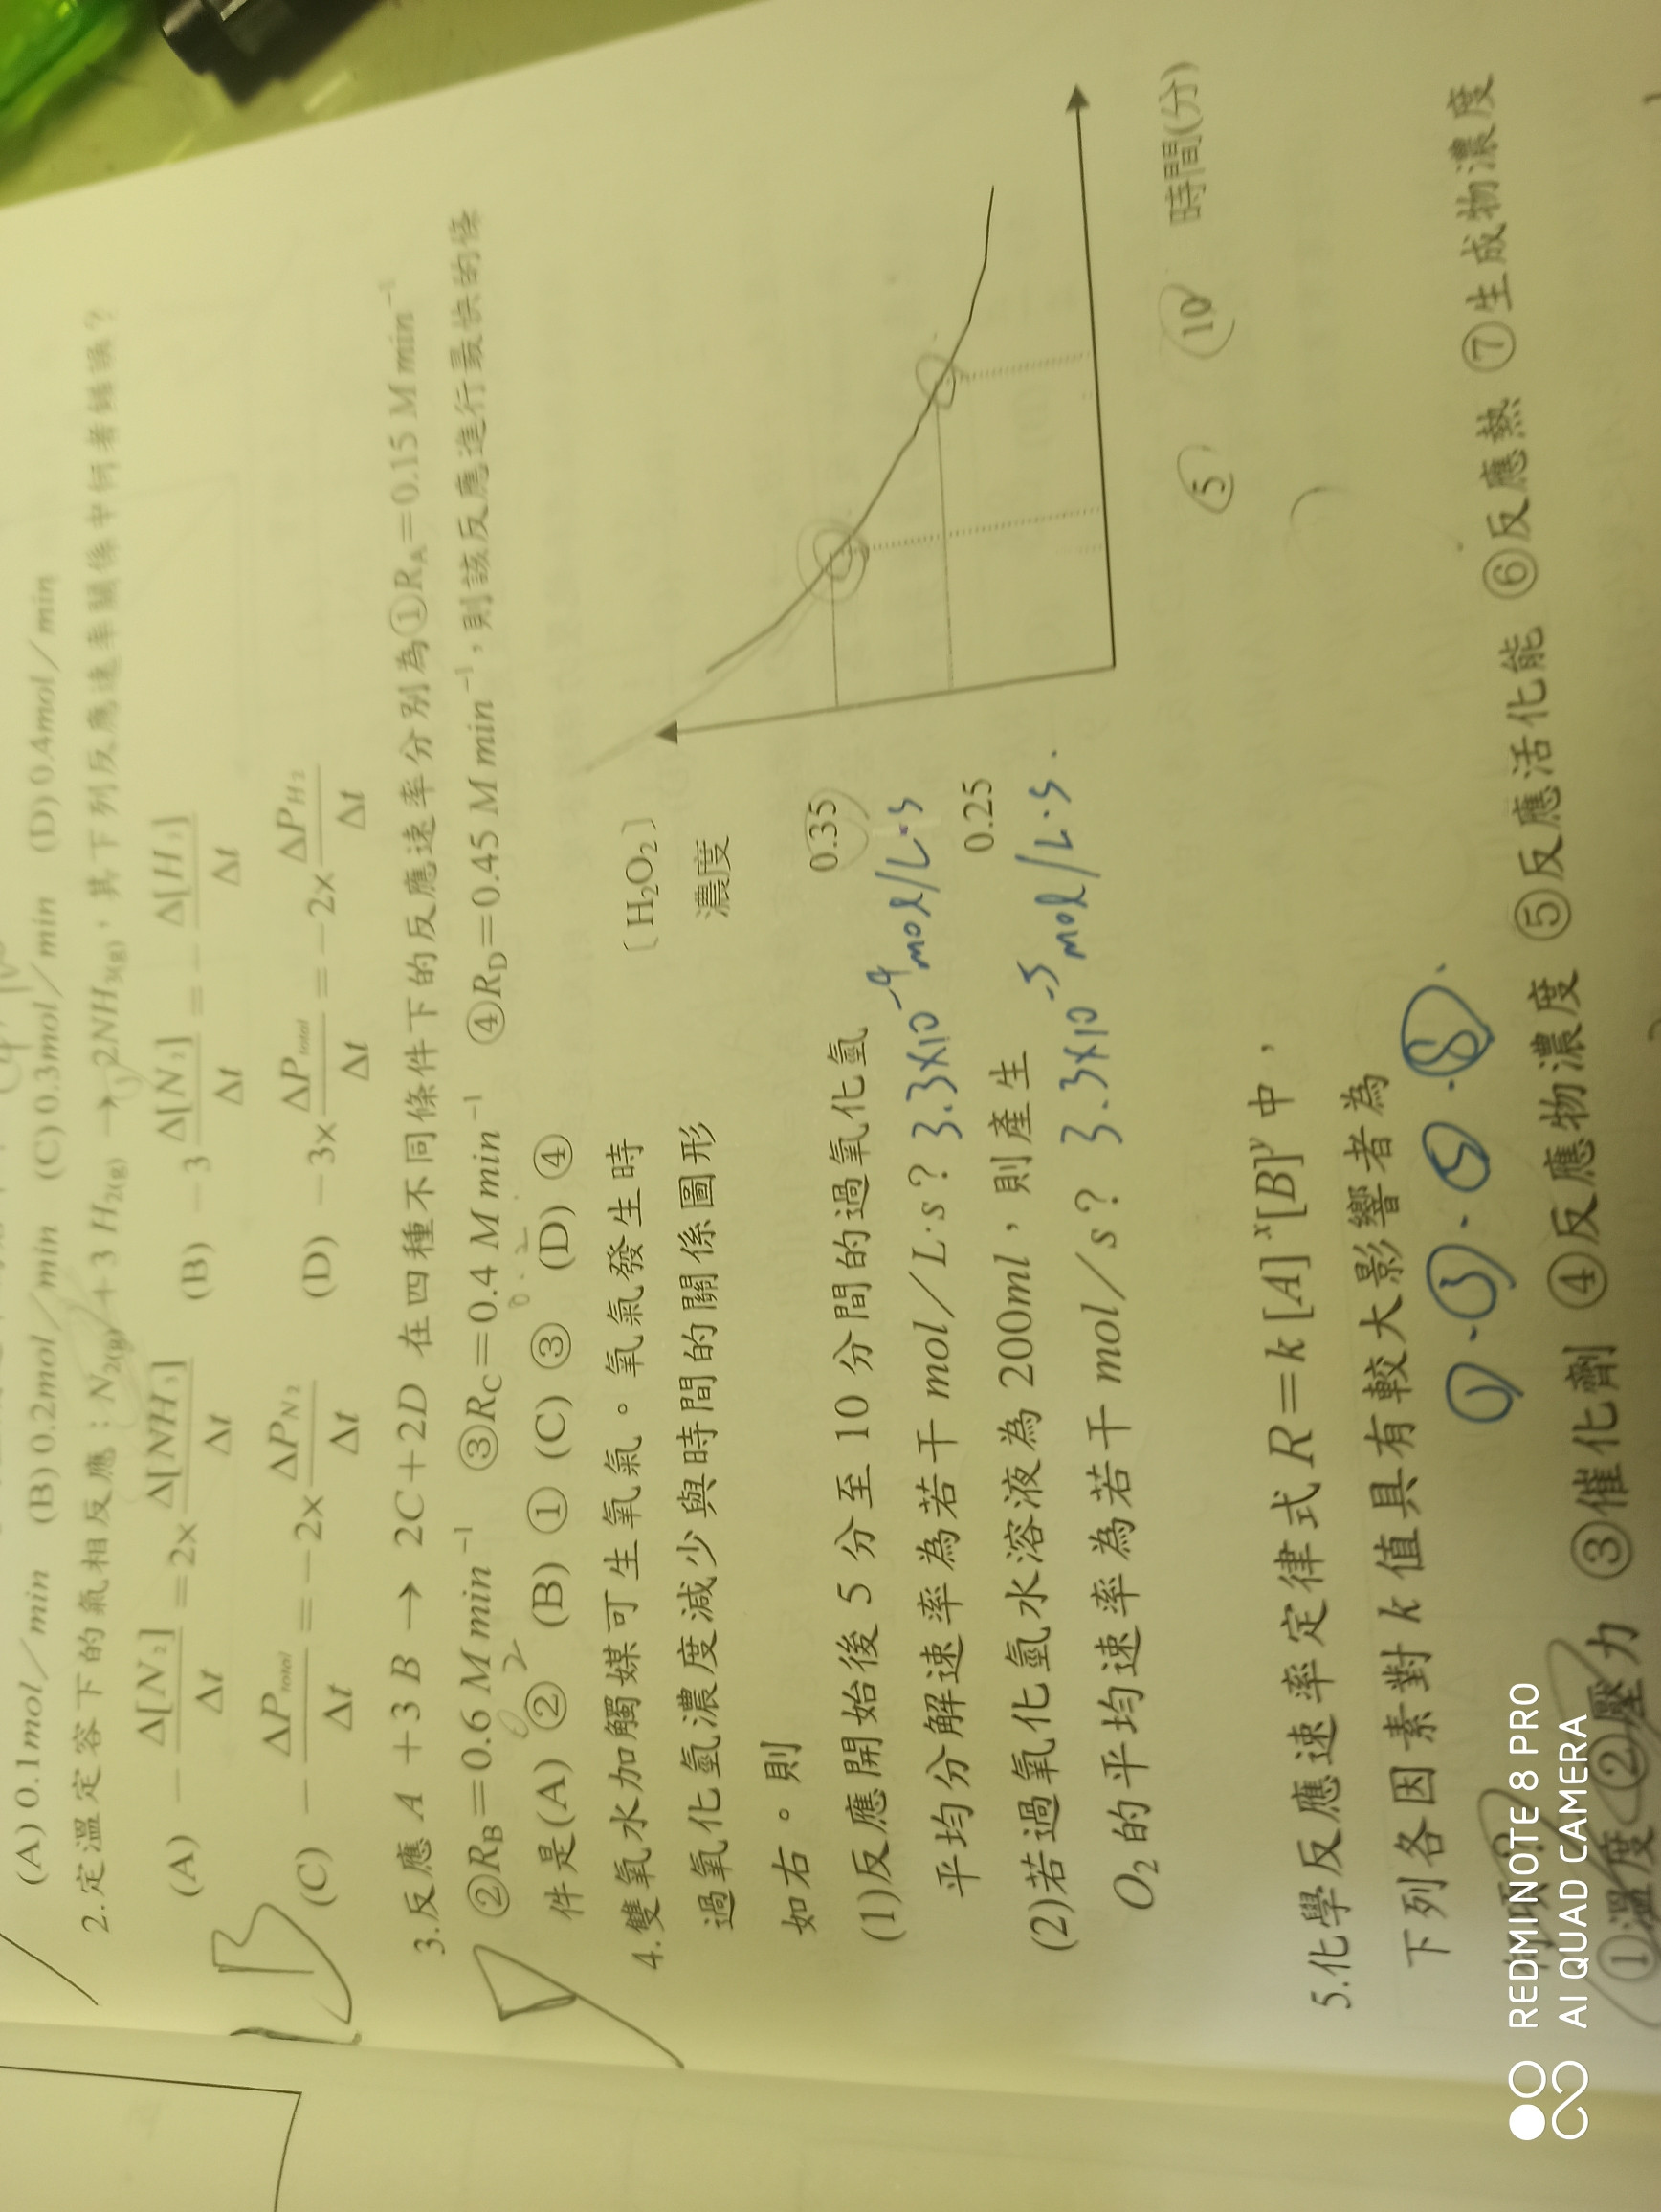 (A) 0.1mol/min (B) 0.2mol/min (C) 0.3mol/min (D) 0.4mol/min
2.定溫定容下的氣相反應：N₂(g)+3 H₂(g) → 2NH₃(g)，其下列反應速率關係中何者錯誤？
(A) −Δ[N₂]/Δt =2×Δ[NH₃]/Δt (B) −3 Δ[N₂]/Δt = −Δ[H₂]/Δt
(C) −ΔP_total/Δt =−2×ΔP_N₂/Δt (D) −3×ΔP_total/Δt =−2×ΔP_H₂/Δt
B
3.反應 A +3 B → 2C+2D 在四種不同條件下的反應速率分別為①R_A=0.15 M min⁻¹
②R_B=0.6 M min⁻¹ ③R_C=0.4 M min⁻¹ ④R_D=0.45 M min⁻¹，則該反應進行最快的條
件是(A) ② (B) ① (C) ③ (D) ④
D
4.雙氧水加觸媒可生氧氣。氧氣發生時
過氧化氫濃度減少與時間的關係圖形
如右。則
(1)反應開始後 5 分至 10 分間的過氧化氫
平均分解速率為若干 mol/L·s？ 3.3×10⁻⁴ mol/L·s
(2)若過氧化氫水溶液為 200ml，則產生
O₂的平均速率為若干 mol/s？ 3.3×10⁻⁵ mol/L·s.
〔H₂O₂〕
濃度
0.35
0.25
5 10 時間(分)
5.化學反應速率定律式 R=k [A]ˣ[B]ʸ 中，
下列各因素對 k 值具有較大影響者為
①.③.⑤.⑧.
①溫度 ②壓力 ③催化劑 ④反應物濃度 ⑤反應活化能 ⑥反應熱 ⑦生成物濃度
REDMI NOTE 8 PRO
AI QUAD CAMERA